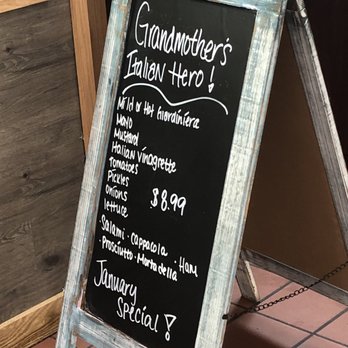 Grandmother's
Italian Hero!
Mild or Hot Giardiniera
Mayo
Mustard
Italian Vinagrette
Tomatoes
Pickles
Onions $8.99
lettuce
Salami · Cappacola · Ham
· Prosciutto · Mortadella
January
Special!